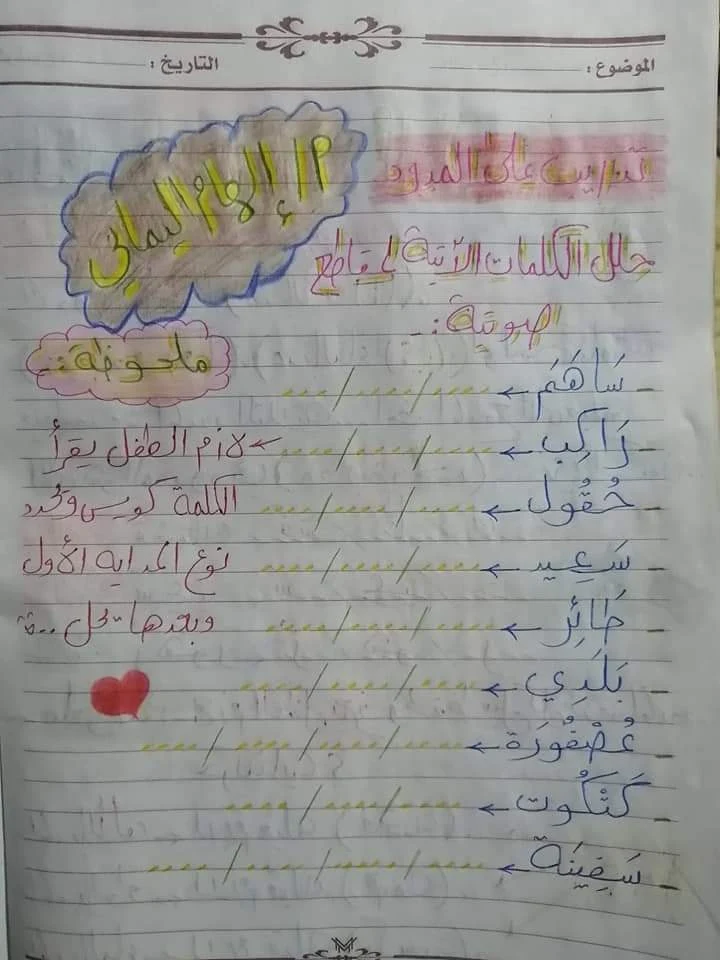 الموضوع : التاريخ :
تدريب على المدود
م/ إلهام اليماني
حلل الكلمات الآتية لمقاطع
صوتية :-
ملحوظة :-
- سَاهَمَ ← ..../..../....
- رَاكِب ← ..../..../....
لازم الطفل يقرأ
- حُقُول ← ..../..../....
الكلمة كويس ويحدد
- سَعِيد ← ..../..../....
نوع المد ايه الأول
- طَائِر ← ..../..../....
وبعدها يحل ..
- بَلَدِي ← ..../..../....
- عُصْفُورَة ← ..../..../..../....
- كَتْكُوت ← ..../..../....
- سَفِينَة ← ..../..../..../....